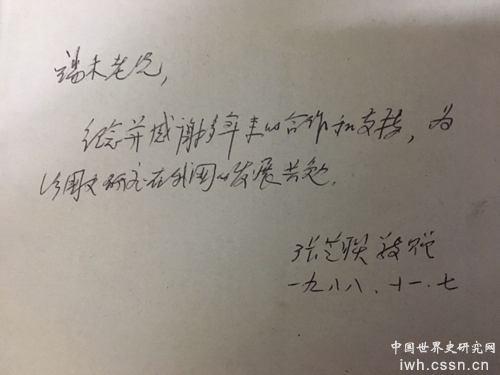 端木老兄，
纪念并感谢多年来的合作和支持，为
法国史研究在我国的发展共勉.
张芝联敬赠
一九八八、十一、七
中国世界史研究网
iwh.cssn.cn